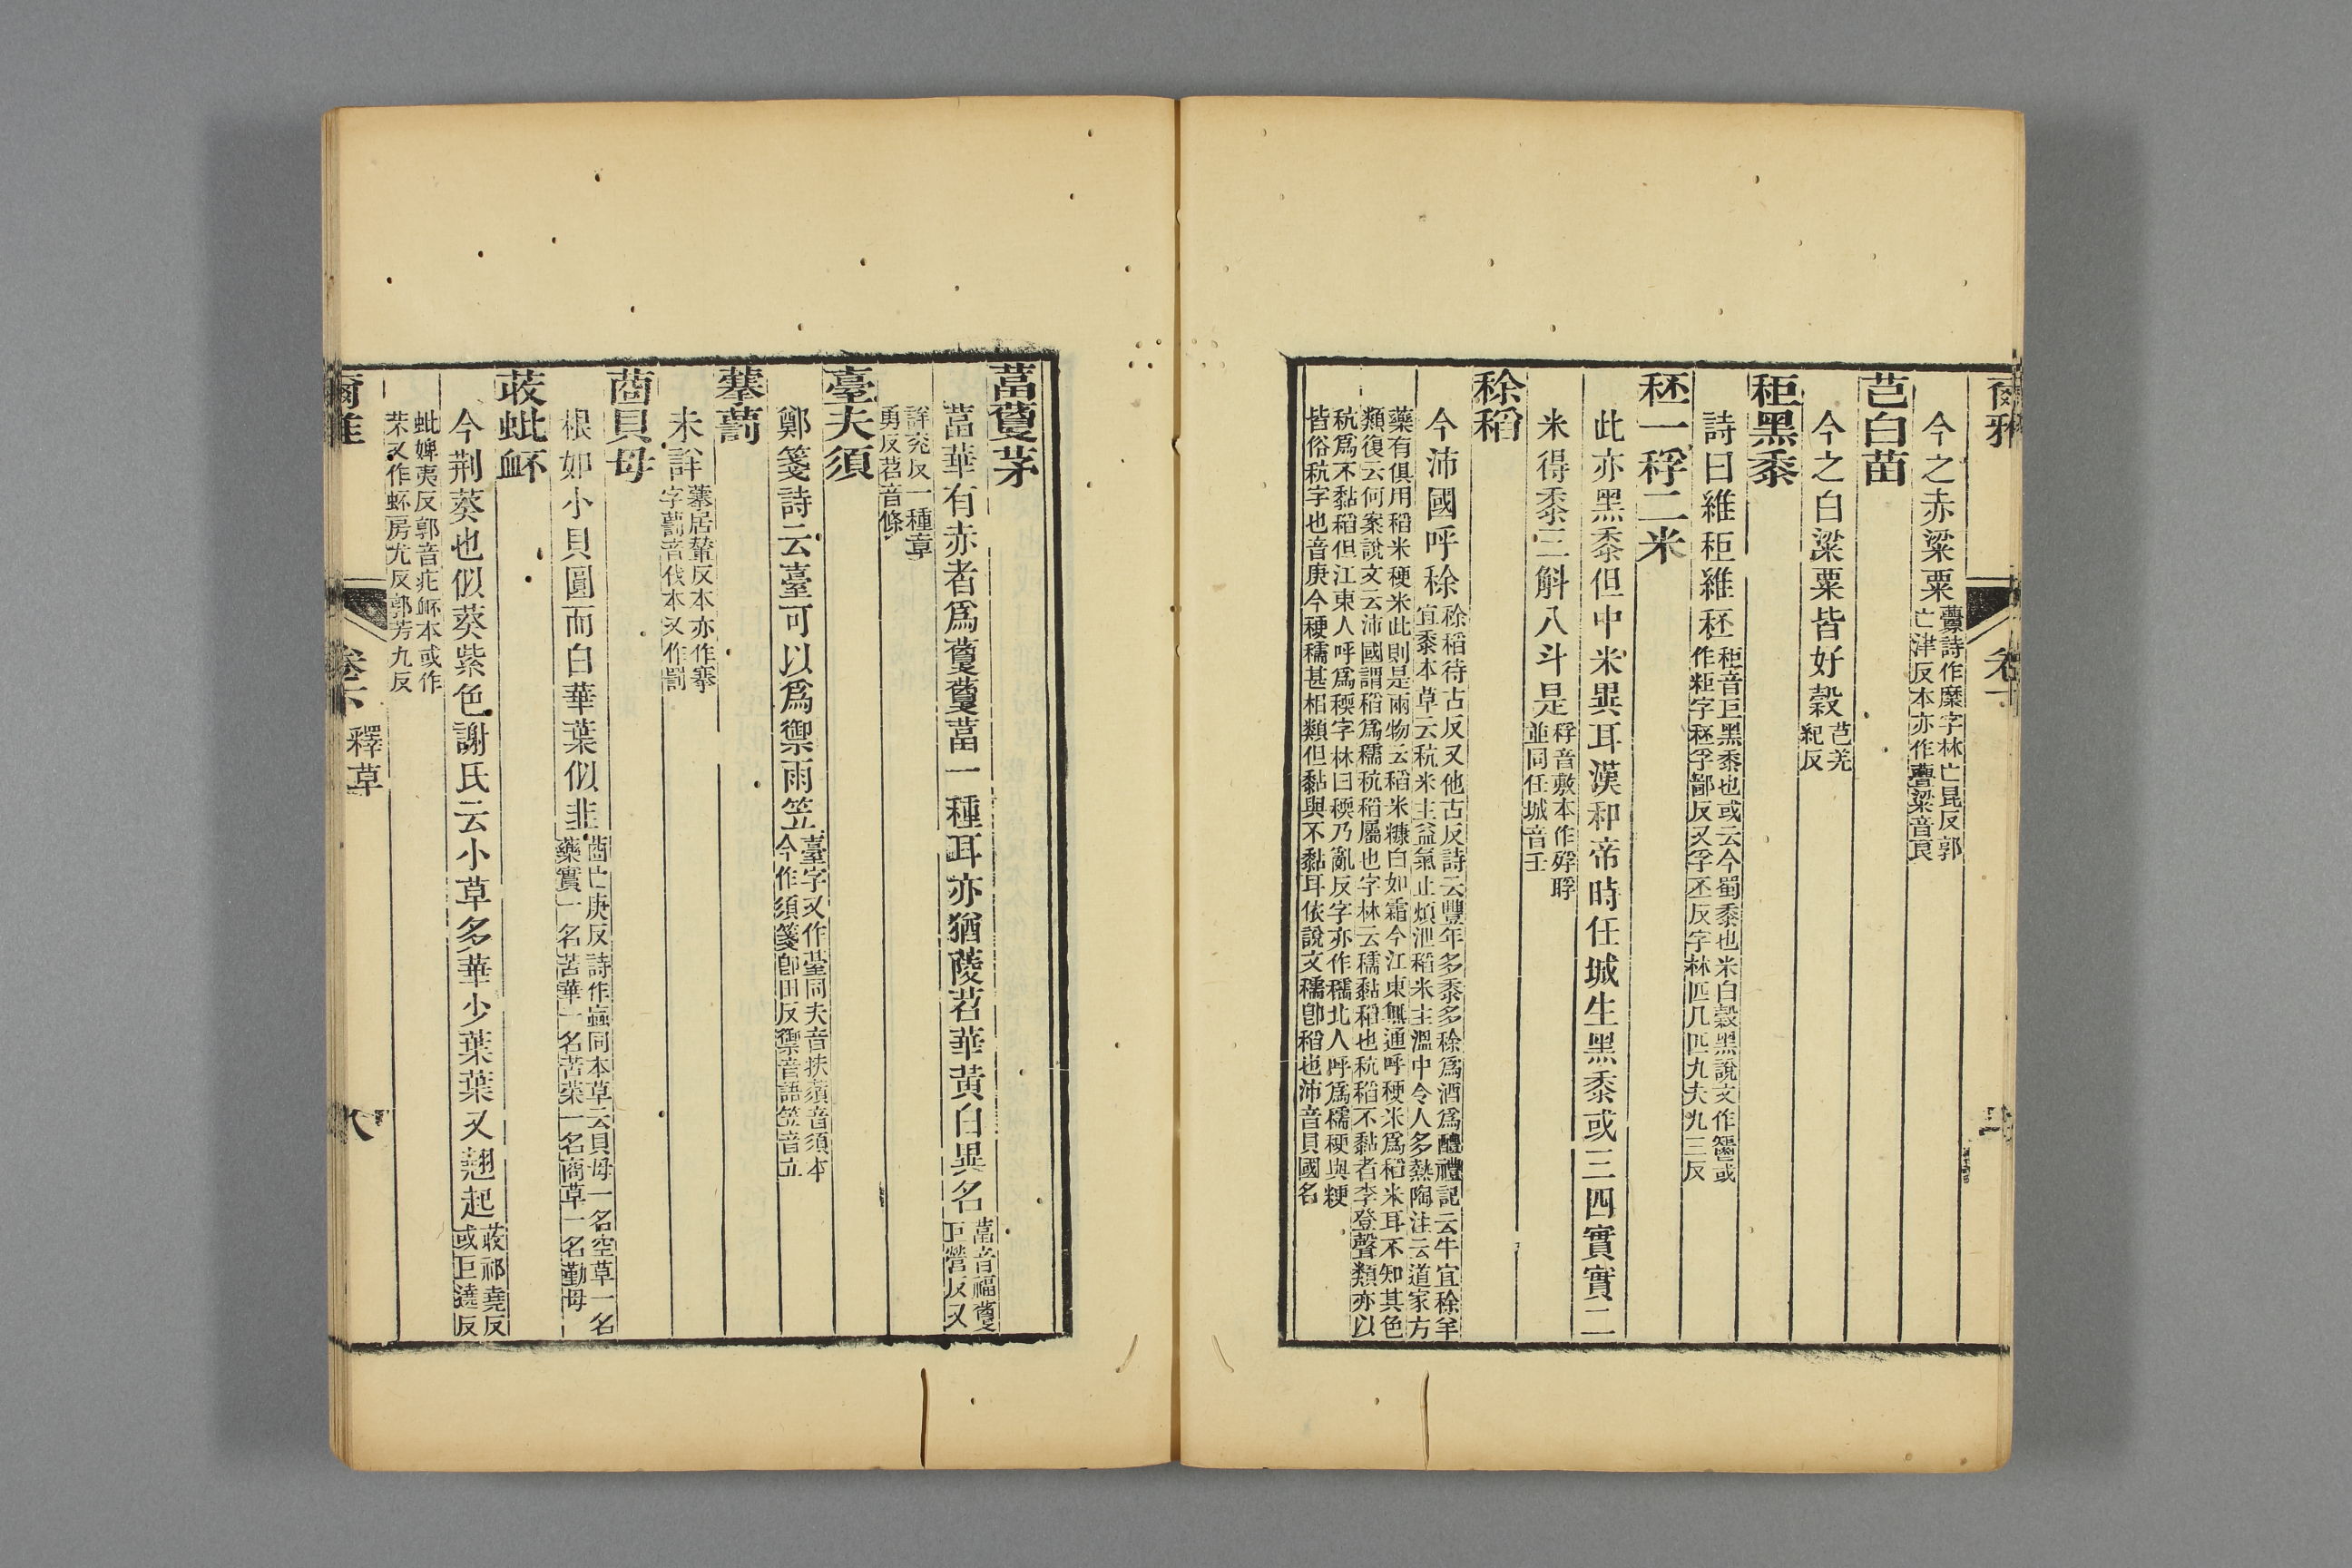 爾雅
今之赤粱粟虋詩作穈字林亡昆反郭
亡津反本亦作虋粱音良
芑白苗
今之白粱粟皆好穀芑羌
紀反
秬黑黍
詩曰維秬維秠秬音巨黑黍也或云今蜀黍也米白穀黑說文作𩰤或
作粔字秠孚鄙反又孚丕反字林匹几匹九夫九三反
秠一稃二米
此亦黑黍但中米異耳漢和帝時任城生黑黍或三四實實二
米得黍三斛八斗是稃音敷本作𥞂䍕
並同任城音壬
稌稻
今沛國呼稌稌稻待古反又他古反詩云豐年多黍多稌爲酒爲醴禮記云牛宜稌羊
宜黍本草云秔米主益氣止煩泄稻米主溫中令人多熱陶注云道家方
藥有俱用稻米稉米此則是兩物云稻米糠白如霜今江東無通呼稉米爲稻米耳不知其色
類復云何案說文云沛國謂稻爲稬秔稻屬也字林云稬黏稻也秔稻不黏者李登聲類亦以
秔爲不黏稻但江東人呼爲稬字林曰稬乃亂反字亦作稬北人呼爲稬稉與粳
皆俗秔字也音庚今稉稬甚相類但黏與不黏耳依說文稬卽稻也沛音貝國名
葍藑茅
葍華有赤者爲藑藑葍一種耳亦猶蔆苕華黃白異名葍音福藑
巨營反又
詳兖反一種章
勇反苕音條
臺夫須
鄭箋詩云臺可以爲禦雨笠臺字又作薹同夫音扶蕦音須本
今作須箋卽田反禦音語笠音立
藆藅
未詳藆居輦反本亦作搴
字藅音伐本又作罰
莔貝母
根如小貝圓而白華葉似韭莔亡庚反詩作蝱同本草云貝母一名空草一名
藥實一名苦華一名苦菜一名商草一名勤母
荍蚍衃
今荆葵也似葵紫色謝氏云小草多華少葉葉又翹起荍祁堯反
或巨遶反
蚍婢夷反郭音疕衃本或作
芣又作蚽房尤反郭芳九反
爾雅
卷下
釋草
八